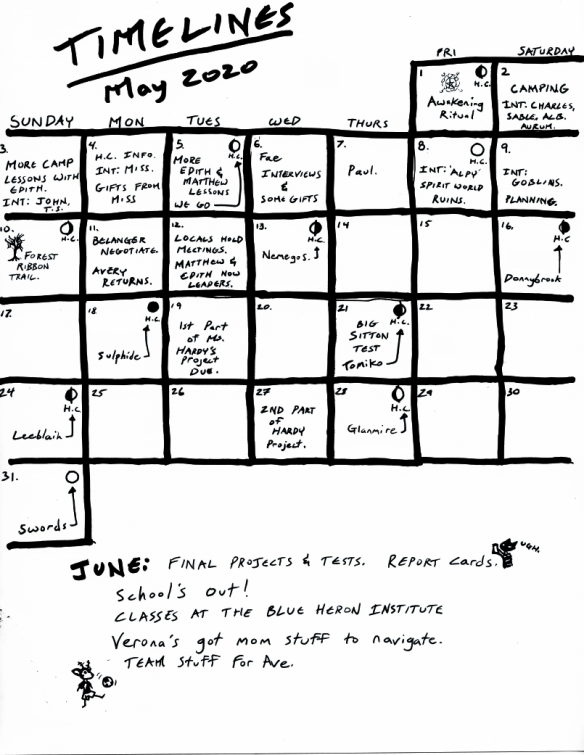 TIMELINES
May 2020
PRI
SATURDAY
SUNDAY
MON
TUES
WED
THURS
1
H.C.
Awakening
Ritual
2
CAMPING
INT: CHARLES,
SABLE, ALB.
AURUM.
3.
MORE CAMP
LESSONS WITH
EDITH.
INT: JOHN,
T.S.
4.
H.C. INFO.
INT: MISS.
GIFTS FROM
MISS
5.
H.C.
MORE
EDITH &
MATTHEW
LESSONS
WE GO
6.
Fae
INTERVIEWS
&
SOME GIFTS
7.
Paul.
8.
H.C.
INT: 'ALPY'
SPIRIT WORLD
RUINS.
9.
INT:
GOBLINS.
PLANNING.
10.
H.C.
FOREST
RIBBON
TRAIL.
11.
BELANGER
NEGOTIATE.
AVERY
RETURNS.
12.
LOCALS HOLD
MEETINGS.
MATTHEW &
EDITH NOW
LEADERS.
13.
H.C.
Nemegos.
14
15
16.
H.C.
Donnybrook
17.
18
H.C.
Sulphide
19
1st Part
of Ms.
HARDY'S
Project
DUE.
20.
21
H.C.
BIG
SITTON
TEST
Tomiko
22
23
24
H.C.
Leeblain
25
26
27
2ND PART
of
HARDY
Project.
28
H.C.
Glanmire
29
30
31.
Swords
JUNE: FINAL PROJECTS & TESTS. REPORT CARDS.
UGH.
School's out!
CLASSES AT THE BLUE HERON INSTITUTE
Verona's got mom stuff to navigate.
TEAM STUFF For Ave.